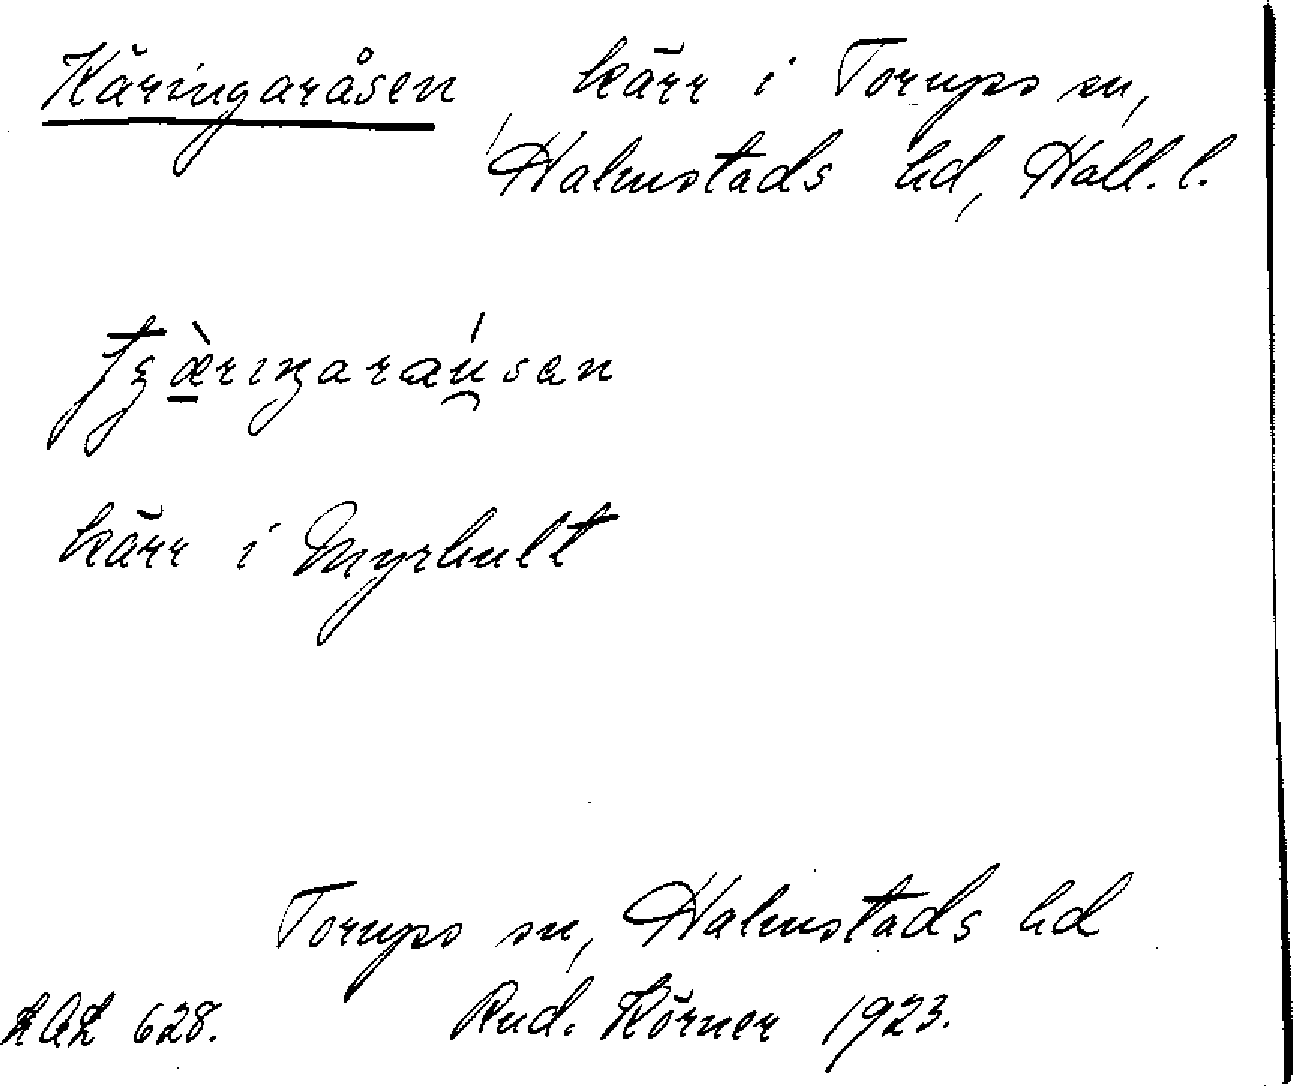 Käringaråsen, kärr i Torups sn,
Halmstads hd, Hall. l.
kärr i Myrhult
Torups sn, Halmstads hd
LAL 628. Rud. Körner 1923.